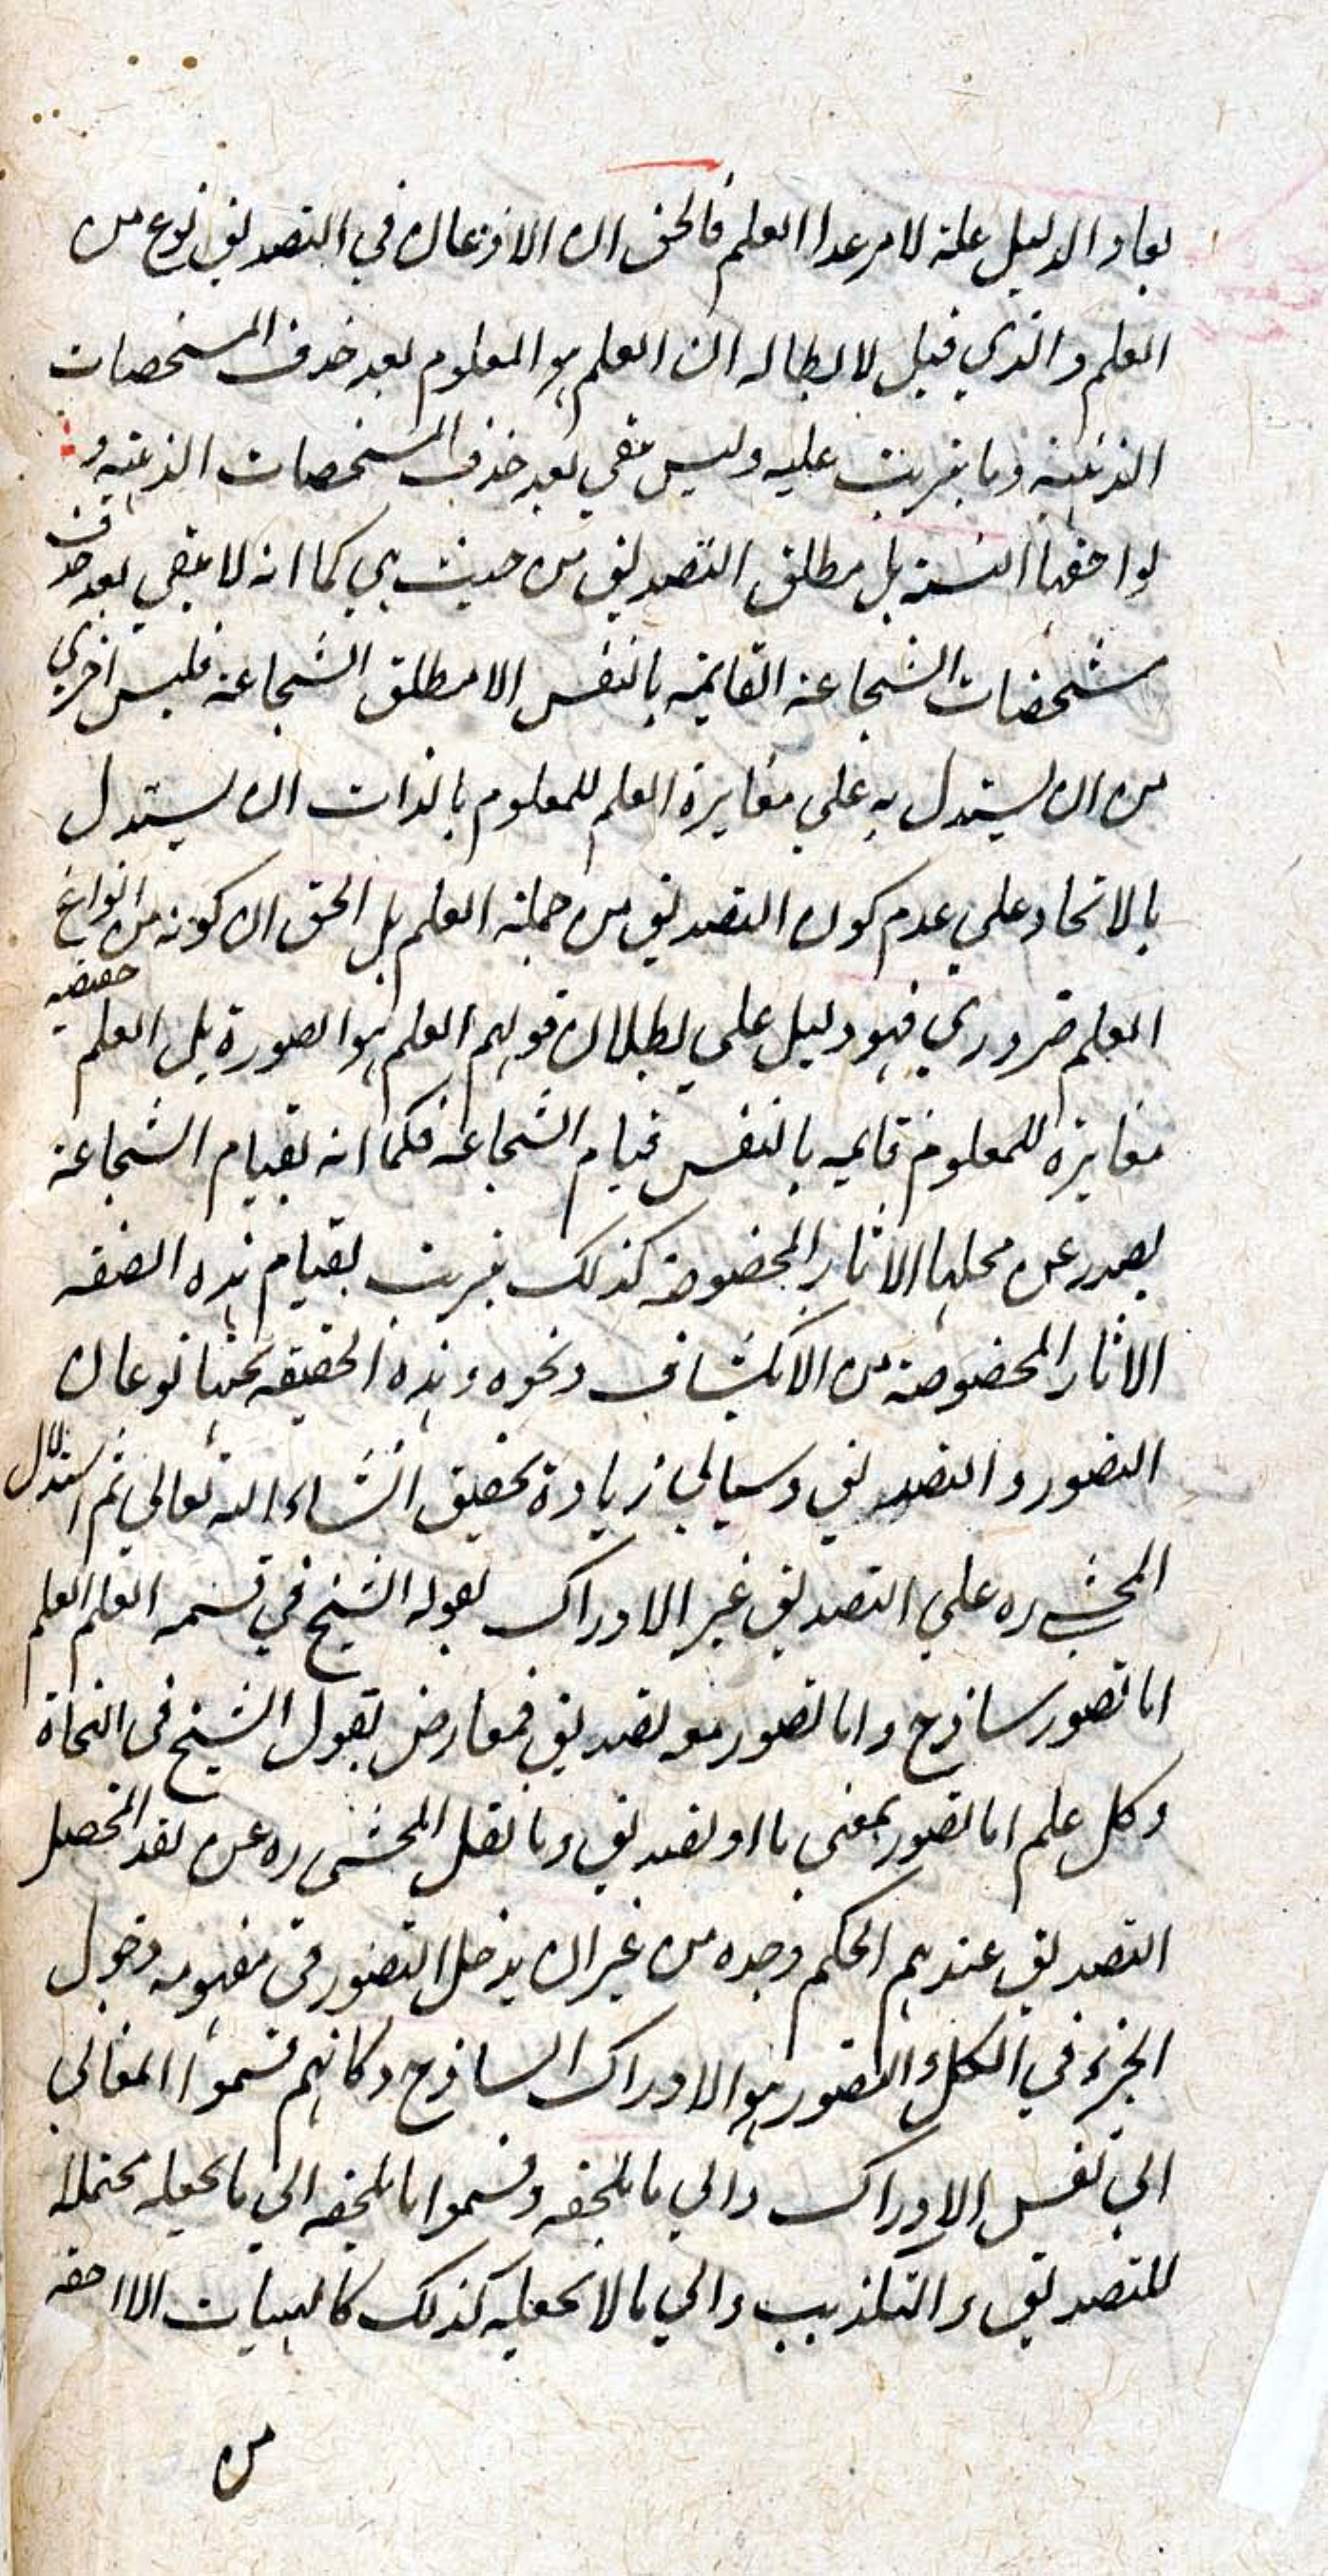 بعاد الدليل علة لامر عدا العلم فالحق ان الاذعان في التصديق نوع من
العلم والذي قيل لابطاله ان العلم هو المعلوم بعد حذف المشخصات
الذهنية وما يترتب عليه وليس يبقي بعد حذف المشخصات الذهنية و
لواحقها النسبة بل مطلق التصديق من حيث هي كما انه لا يبقي بعد حذف
مشخصات الشجاعة القايمة بالنفس الا مطلق الشجاعة فليس احري
من ان يستدل به علي مغايرة العلم للمعلوم بالذات ان يستدل
بالاتحاد علي عدم كون التصديق من جملة العلم بل الحق ان كونه من انواع
العلم ضروري فهو دليل علي بطلان قولهم العلم هو الصورة بل العلم حقيقة
مغايرة للمعلوم قايمة بالنفس قيام الشجاعة فكما انه بقيام الشجاعة
يصدر عن محلها الاثار المخصوصة كذلك يترتب بقيام هذه الصفة
الاثار المخصوصة من الانكشاف ونحوه وهذه الحقيقة تحتها نوعان
التصور والتصديق وسياتي زيادة تحقيق انشاء الله تعالي ثم استدلال
المحشي ره علي التصديق غير الادراك بقوله الشيخ في قسمة العلم العلم
اما تصور ساذج واما تصور معه تصديق فمعارض بقول الشيخ في النجاة
وكل علم اما تصور بمعني ما او تصديق وما نقل المحشي ره عن نقد المحصل
التصديق عندهم الحكم وحده من غير ان يدخل التصور في مفهومه دخول
الجزء في الكل والتصور هو الادراك الساذج وكانهم قسموا المعاني
الي نفس الادراك والي ما يلحقه وقسموا ما يلحقه الي ما يجعله محتملا
للتصديق والتكذيب والي ما لا يجعله كذلك كالهيات اللاحقه
من